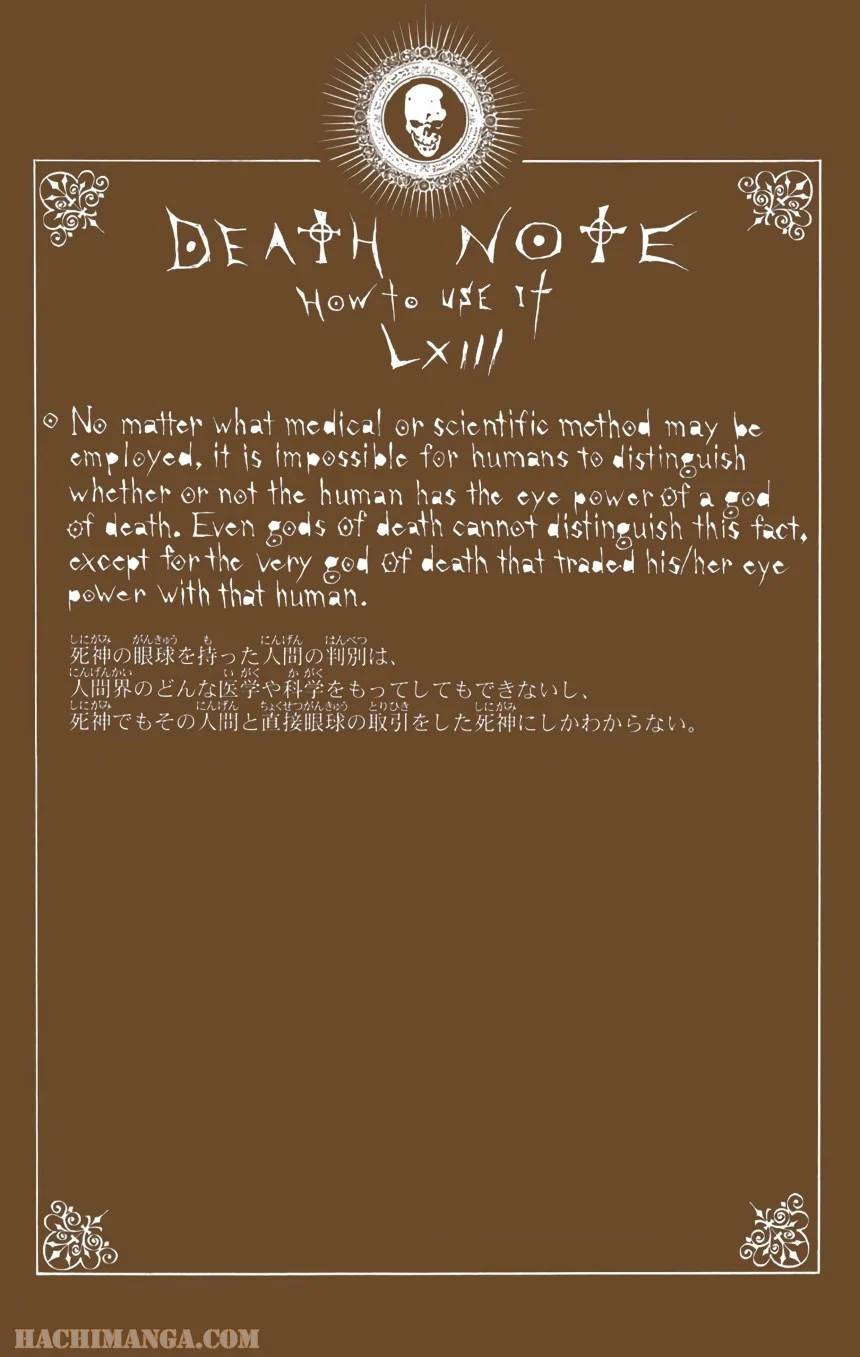 DEATH NOTE
HOW TO USE IT
LXIII
No matter what medical or scientific method may be
employed, it is impossible for humans to distinguish
whether or not the human has the eye power of a god
of death. Even gods of death cannot distinguish this fact,
except for the very god of death that traded his/her eye
power with that human.
しにがみ がんきゅう も にんげん はんべつ
死神の眼球を持った人間の判別は、
にんげんかい い がく か がく
人間界のどんな医学や科学をもってしてもできないし、
しにがみ にんげん ちょくせつがんきゅう とりひき しにがみ
死神でもその人間と直接眼球の取引をした死神にしかわからない。
HACHIMANGA.COM